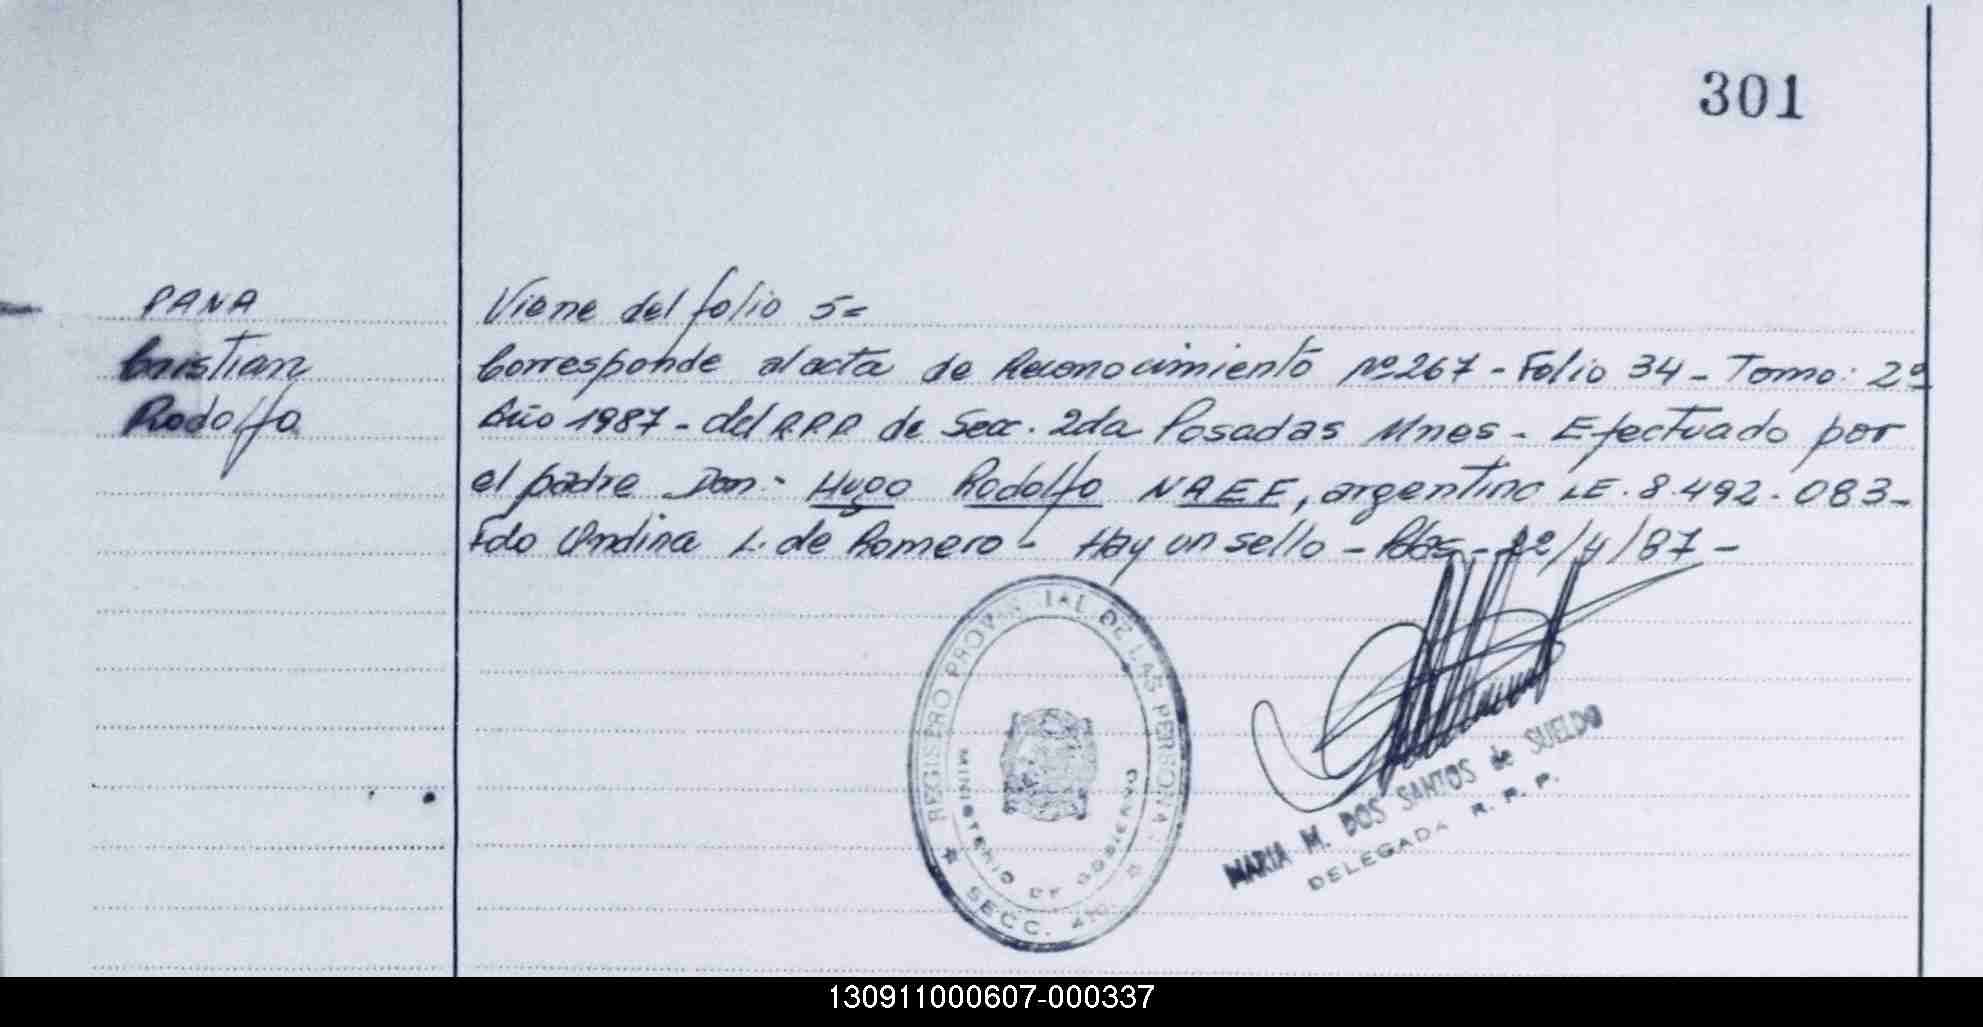 301
PANA
Cristian
Rodolfo
Viene del folio 5=
Corresponde al acta de Reconocimiento Nº 267 - Folio 34 - Tomo: 2º
Año 1987 - del R.P.P de Secc. 2da Posadas Mnes - Efectuado por
el padre Don: Hugo Rodolfo NAEF, argentino LE. 8.492.083-
Fdo Ondina L. de Romero - Hay un sello - Pdas - /4/87 -
REGISTRO PROVINCIAL DE LAS PERSONAS
MINISTERIO DE GOBIERNO
SECC. 4ta.
MARIA M. DOS SANTOS de SUELDO
DELEGADA R. P. P.
130911000607-000337